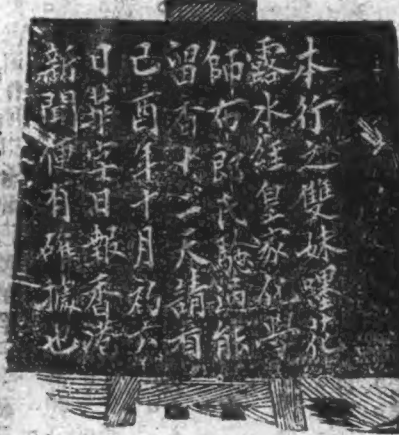 本行造雙妹嚜花
露水經皇家化學
師布郎氏驗過能
留香十二天請看
己酉年十月初六
日華字日報香港
新聞便有確據也